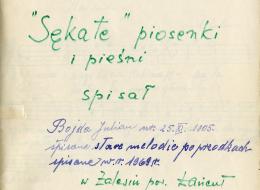 "Sękate" piosenki
i pieśni
spisał
Bojda Julian ur. 25.XI.1905.
spisane stare melodie po przodkach
spisane w r. 1968 r.
w Zalesiu pow. Łańcut